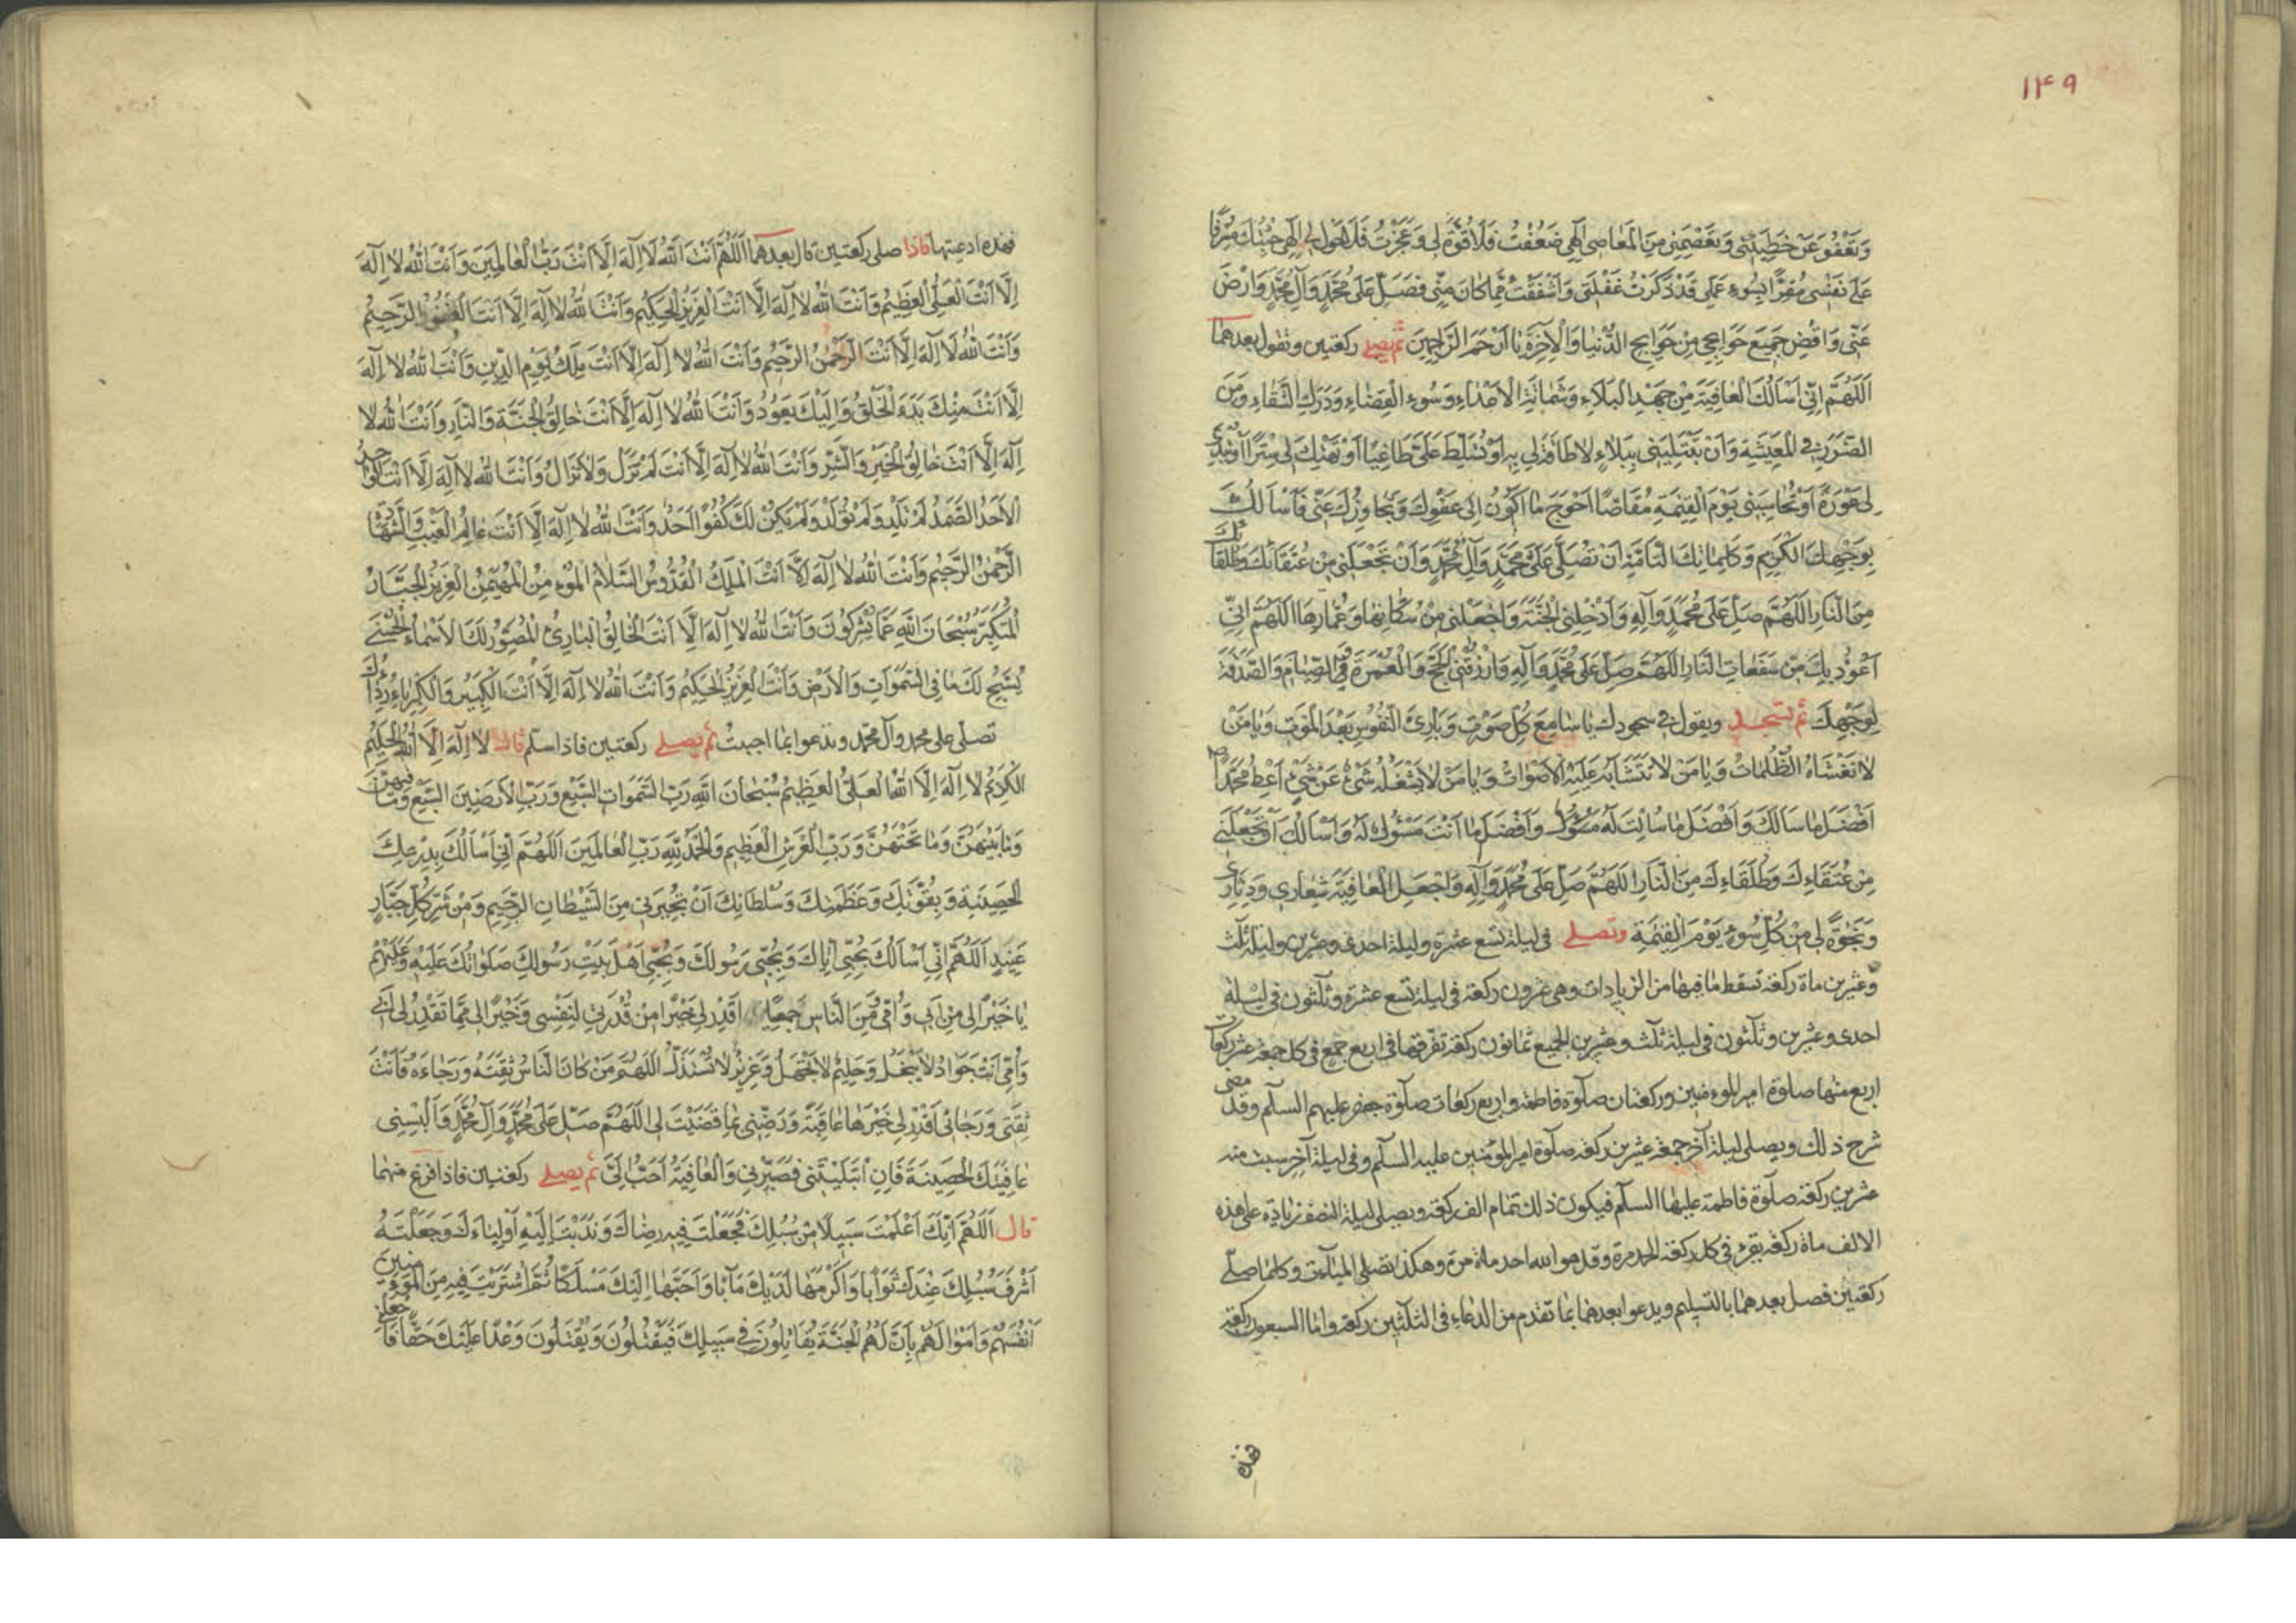 ١٤٩
وَتَعْفُوَ عَنْ خَطِيئَتي وَتَعْصِمَني مِنَ الْمَعٰاصي اِلٰهي ضَعُفْتُ فَلاٰ قُوَّةَ لي وَعَجَزْتُ فَلاٰ حَوْلَ لي اِلٰهي جِئْتُكَ مُسْرِفًا
عَلىٰ نَفْسي مُقِرًّا بِسُوءِ عَمَلي قَدْ ذَكَرْتُ غَفْلَتي وَاَشْفَقْتُ مِمّٰا كٰانَ مِنّي فَصَلِّ عَلىٰ مُحَمَّدٍ وَآلِ مُحَمَّدٍ وَارْضَ
عَنّي وَاقْضِ جَميعَ حَوٰائِجي مِنْ حَوٰائِجِ الدُّنْيٰا وَالْآخِرَةِ يٰا اَرْحَمَ الرّٰاحِمينَ ثم يصلى ركعتين وتقول بعدهما
اَللّٰهُمَّ اِنّي اَسْأَلُكَ الْعٰافِيَةَ مِنْ جَهْدِ الْبَلاٰءِ وَشَمٰاتَةِ الْاَعْدٰاءِ وَسُوءِ الْقَضٰاءِ وَدَرَكِ الشَّقٰاءِ وَمِنَ
الضَّرَرِ فِي الْمَعيشَةِ وَاَنْ تَبْتَلِيَني بِبَلاٰءٍ لاٰ طٰاقَةَ لي بِهِ اَوْ تُسَلِّطَ عَلَيَّ طٰاغِيًا اَوْ تَهْتِكَ لي سِتْرًا اَوْ تُبْدِيَ
لي عَوْرَةً اَوْ تُحٰاسِبَني يَوْمَ الْقِيٰمَةِ مُقٰاصًّا اَحْوَجَ مٰا اَكُونُ اِلىٰ عَفْوِكَ وَتَجٰاوُزِكَ عَنّي فَاَسْأَلُكَ
بِوَجْهِكَ الْكَريمِ وَكَلِمٰاتِكَ التّٰامَّةِ اَنْ تُصَلِّيَ عَلىٰ مُحَمَّدٍ وَآلِ مُحَمَّدٍ وَاَنْ تَجْعَلَني مِنْ عُتَقٰائِكَ وَطُلَقٰائِكَ
مِنَ النّٰارِ اَللّٰهُمَّ صَلِّ عَلىٰ مُحَمَّدٍ وَآلِهِ وَاَدْخِلْنِي الْجَنَّةَ وَاجْعَلْني مِنْ سُكّٰانِهٰا وَعُمّٰارِهٰا اَللّٰهُمَّ اِنّي
اَعُوذُ بِكَ مِنْ سَفَعٰاتِ النّٰارِ اَللّٰهُمَّ صَلِّ عَلىٰ مُحَمَّدٍ وَآلِهِ وَارْزُقْنِي الْحَجَّ وَالْعُمْرَةَ وَالصِّيٰامَ وَالصَّدَقَةَ
لِوَجْهِكَ ثم تسجد ويقول في سجودك يٰا سٰامِعَ كُلِّ صَوْتٍ وَبٰارِئَ النُّفُوسِ بَعْدَ الْمَوْتِ وَيٰا مَنْ
لاٰ تَغْشٰاهُ الظُّلُمٰاتُ وَيٰا مَنْ لاٰ تَتَشٰابَهُ عَلَيْهِ الْاَصْوٰاتُ وَيٰا مَنْ لاٰ يَشْغَلُهُ شَيْءٌ عَنْ شَيْءٍ اَعْطِ مُحَمَّدًا
اَفْضَلَ مٰا سَأَلَكَ وَاَفْضَلَ مٰا سُئِلْتَ لَهُ وَاَفْضَلَ مٰا اَنْتَ مَسْؤُلٌ لَهُ وَاَسْأَلُكَ اَنْ تَجْعَلَني
مِنْ عُتَقٰاءِكَ وَطُلَقٰاءِكَ مِنَ النّٰارِ اَللّٰهُمَّ صَلِّ عَلىٰ مُحَمَّدٍ وَآلِهِ وَاجْعَلِ الْعٰافِيَةَ شِعٰاري وَدِثٰاري
وَنَجٰوةً لي مِنْ كُلِّ سُوءٍ يَوْمَ الْقِيٰمَةِ وتصلى في ليلة تسع عشرة وليلة احدى وعشرين وليلة ثلث
وعشرين ماة ركعة تسقط ما فيها من الزيادات وهي عشرون ركعة في ليلة تسع عشرة وثلثون في ليلة
احدى وعشرين وثلثون في ليلة ثلث وعشرين الجميع ثمانون ركعة تفرقها في اربع جمع في كل جمعة عشر ركعات
اربع منها صلوة امير المومنين وركعتان صلوة فاطمة واربع ركعات صلوة جعفر عليهم السلم وقد مضى
شرح ذلك ويصلى ليلة آخر جمعة عشرين ركعة صلوة امير المؤمنين عليه السلم وفي ليلة آخر سبت منه
عشرين ركعة صلوة فاطمة عليها السلم فيكون ذلك تمام الف ركعة ويصلى ليلة النصف زيادة على هذه
الالف ماة ركعة يقرء في كل ركعة الحمد مرة وقل هو الله احد ماة مرة وهكذا تصلى المياءت وكلما صلى
ركعتين فصل بعدهما بالتسليم ويدعوا بعدهما بما تقدم من الدعاء في الثلثين ركعة واما السبعون ركعة
فهذه
فهذه ادعيتها فاذا صلى ركعتين قال بعدهما اَللّٰهُمَّ اَنْتَ اللّٰهُ لاٰ اِلٰهَ اِلاّٰ اَنْتَ رَبُّ الْعٰالَمينَ وَاَنْتَ اللّٰهُ لاٰ اِلٰهَ
اِلاّٰ اَنْتَ الْعَلِيُّ الْعَظيمُ وَاَنْتَ اللّٰهُ لاٰ اِلٰهَ اِلاّٰ اَنْتَ الْعَزيزُ الْحَكيمُ وَاَنْتَ اللّٰهُ لاٰ اِلٰهَ اِلاّٰ اَنْتَ الْغَفُورُ الرَّحيمُ
وَاَنْتَ اللّٰهُ لاٰ اِلٰهَ اِلاّٰ اَنْتَ الرَّحْمٰنُ الرَّحيمُ وَاَنْتَ اللّٰهُ لاٰ اِلٰهَ اِلاّٰ اَنْتَ مٰلِكُ يَوْمِ الدّينِ وَاَنْتَ اللّٰهُ لاٰ اِلٰهَ
اِلاّٰ اَنْتَ مِنْكَ بَدْءُ الْخَلْقِ وَاِلَيْكَ يَعُودُ وَاَنْتَ اللّٰهُ لاٰ اِلٰهَ اِلاّٰ اَنْتَ خٰالِقُ الْجَنَّةِ وَالنّٰارِ وَاَنْتَ اللّٰهُ لاٰ
اِلٰهَ اِلاّٰ اَنْتَ خٰالِقُ الْخَيْرِ وَالشَّرِّ وَاَنْتَ اللّٰهُ لاٰ اِلٰهَ اِلاّٰ اَنْتَ لَمْ تَزَلْ وَلاٰ تَزٰالُ وَاَنْتَ اللّٰهُ لاٰ اِلٰهَ اِلاّٰ اَنْتَ الْوٰاحِدُ
الْاَحَدُ الصَّمَدُ لَمْ تَلِدْ وَلَمْ تُولَدْ وَلَمْ يَكُنْ لَكَ كُفُوًا اَحَدٌ وَاَنْتَ اللّٰهُ لاٰ اِلٰهَ اِلاّٰ اَنْتَ عٰالِمُ الْغَيْبِ وَالشَّهٰادَةِ
الرَّحْمٰنُ الرَّحيمُ وَاَنْتَ اللّٰهُ لاٰ اِلٰهَ اِلاّٰ اَنْتَ الْمَلِكُ الْقُدُّوسُ السَّلاٰمُ الْمُؤْمِنُ الْمُهَيْمِنُ الْعَزيزُ الْجَبّٰارُ
الْمُتَكَبِّرُ سُبْحٰانَ اللّٰهِ عَمّٰا يُشْرِكُونَ وَاَنْتَ اللّٰهُ لاٰ اِلٰهَ اِلاّٰ اَنْتَ الْخٰالِقُ الْبٰارِئُ الْمُصَوِّرُ لَكَ الْاَسْمٰاءُ الْحُسْنىٰ
يُسَبِّحُ لَكَ مٰا فِي السَّمٰوٰاتِ وَالْاَرْضِ وَاَنْتَ الْعَزيزُ الْحَكيمُ وَاَنْتَ اللّٰهُ لاٰ اِلٰهَ اِلاّٰ اَنْتَ الْكَبيرُ وَالْكِبْرِيٰاءُ رِدٰاؤُكَ
تصلى على محمد وآل محمد وتدعوا بما اجبت ثم يصلى ركعتين فاذا سلم قال لاٰ اِلٰهَ اِلاَّ اللّٰهُ الْحَليمُ
الْكَريمُ لاٰ اِلٰهَ اِلاَّ اللّٰهُ الْعَلِيُّ الْعَظيمُ سُبْحٰانَ اللّٰهِ رَبِّ السَّمٰوٰاتِ السَّبْعِ وَرَبِّ الْاَرَضينَ السَّبْعِ وَمٰا فيهِنَّ
وَمٰا بَيْنَهُنَّ وَمٰا تَحْتَهُنَّ وَرَبِّ الْعَرْشِ الْعَظيمِ وَالْحَمْدُ لِلّٰهِ رَبِّ الْعٰالَمينَ اَللّٰهُمَّ اِنّي اَسْأَلُكَ بِدِرْعِكَ
الْحَصينَةِ وَبِقُوَّتِكَ وَعَظَمَتِكَ وَسُلْطٰانِكَ اَنْ تُجيرَني مِنَ الشَّيْطٰانِ الرَّجيمِ وَمِنْ شَرِّ كُلِّ جَبّٰارٍ
عَنيدٍ اَللّٰهُمَّ اِنّي اَسْأَلُكَ بِحُبّي اِيّٰاكَ وَبِحُبّي رَسُولَكَ وَبِحُبّي اَهْلَ بَيْتِ رَسُولِكَ صَلَوٰاتُكَ عَلَيْهِ وَعَلَيْهِمْ
يٰا خَيْرًا لي مِنْ اَبي وَاُمّي وَمِنَ النّٰاسِ جَميعًا اَقْدِرْ لي خَيْرًا مِنْ قُدْرَتي لِنَفْسي وَخَيْرًا لي مِمّٰا تَقْدِرُ لي اَبي
وَاُمّي اَنْتَ جَوٰادٌ لاٰ يَبْخَلُ وَحَليمٌ لاٰ يَجْهَلُ وَعَزيزٌ لاٰ يُسْتَذَلُّ اَللّٰهُمَّ مَنْ كٰانَ النّٰاسُ ثِقَتَهُ وَرَجٰاءَهُ فَاَنْتَ
ثِقَتي وَرَجٰائي اَقْدِرْ لي خَيْرَهٰا عٰاقِبَةً وَرَضِّني بِمٰا قَضَيْتَ لي اَللّٰهُمَّ صَلِّ عَلىٰ مُحَمَّدٍ وَآلِ مُحَمَّدٍ وَاَلْبِسْني
عٰافِيَتَكَ الْحَصينَةَ فَاِنِ ابْتَلَيْتَني فَصَبِّرْني وَالْعٰافِيَةُ اَحَبُّ اِلَيَّ ثم يصلى ركعتين فاذا فرغ منهما
قال اَللّٰهُمَّ اِنَّكَ اَعْلَمْتَ سَبيلاً مِنْ سُبُلِكَ فَجَعَلْتَ فيهِ رِضٰاكَ وَنَدَبْتَ اِلَيْهِ اَوْلِيٰاءَكَ وَجَعَلْتَهُ
اَشْرَفَ سُبُلِكَ عِنْدَكَ ثَوٰابًا وَاَكْرَمَهٰا لَدَيْكَ مَآبًا وَاَحَبَّهٰا اِلَيْكَ مَسْلَكًا ثُمَّ اشْتَرَيْتَ فيهِ مِنَ الْمُؤْمِنينَ
اَنْفُسَهُمْ وَاَمْوٰالَهُمْ بِاَنَّ لَهُمُ الْجَنَّةَ يُقٰاتِلُونَ في سَبيلِكَ فَيَقْتُلُونَ وَيُقْتَلُونَ وَعْدًا عَلَيْكَ حَقًّا فَاجْعَلْني